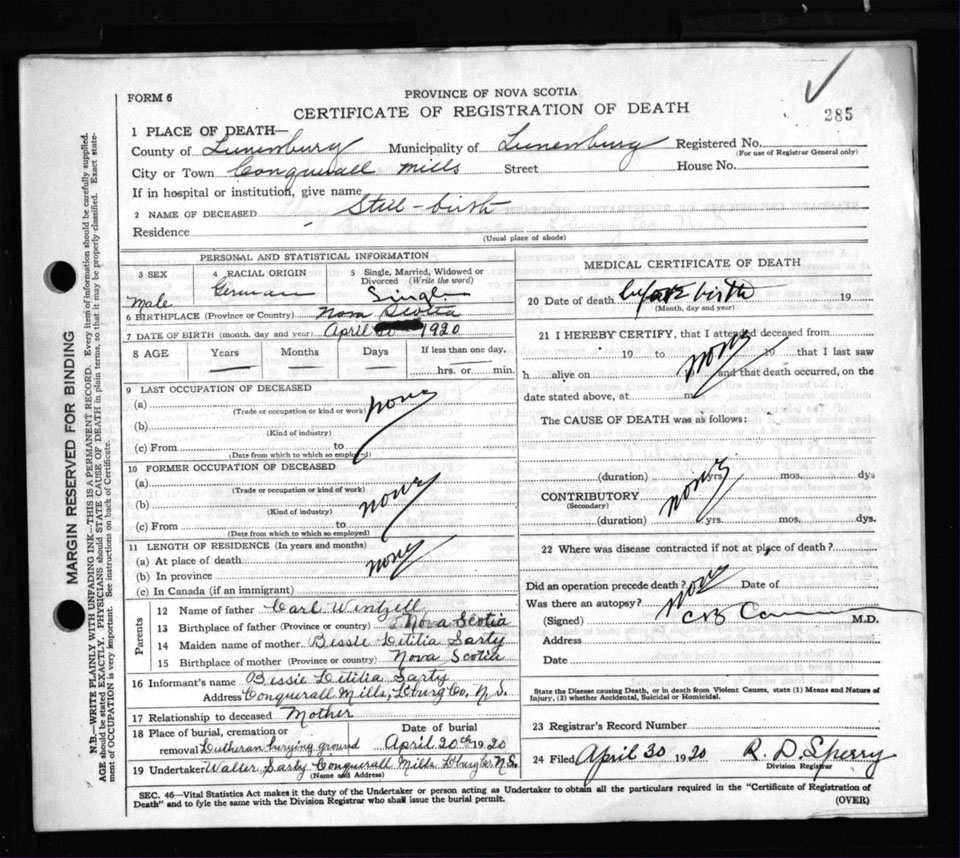 FORM 6
PROVINCE OF NOVA SCOTIA
CERTIFICATE OF REGISTRATION OF DEATH
285
1 PLACE OF DEATH—
County of Lunenburg Municipality of Lunenburg Registered No.
(For use of Registrar General only)
City or Town Conquerall Mills Street House No.
If in hospital or institution, give name
2 NAME OF DECEASED Still-birth
Residence
(Usual place of abode)
PERSONAL AND STATISTICAL INFORMATION
3 SEX Male
4 RACIAL ORIGIN German
5 Single, Married, Widowed or Divorced (Write the word) Single
6 BIRTHPLACE (Province or Country) Nova Scotia
7 DATE OF BIRTH (month, day and year) April 1920
8 AGE Years Months Days If less than one day, hrs. or min.
9 LAST OCCUPATION OF DECEASED
(a) none
(Trade or occupation or kind of work)
(b)
(Kind of industry)
(c) From to
(Date from which to which so employed)
10 FORMER OCCUPATION OF DECEASED
(a)
(Trade or occupation or kind of work)
(b) none
(Kind of industry)
(c) From to
(Date from which to which so employed)
11 LENGTH OF RESIDENCE (In years and months)
(a) At place of death none
(b) In province
(c) In Canada (if an immigrant)
Parents
12 Name of father Carl Wentzell
13 Birthplace of father (Province or country) Nova Scotia
14 Maiden name of mother Bessie Letilia Sarty
15 Birthplace of mother (Province or country) Nova Scotia
16 Informant's name Bessie Letilia Sarty
Address Conquerall Mills, Lburg Co, N. S.
17 Relationship to deceased Mother
18 Place of burial, cremation or removal Lutheran burying ground
Date of burial April 20th 1920
19 Undertaker Walter Sarty Conquerall Mills Lburg Co N.S.
(Name and Address)
MEDICAL CERTIFICATE OF DEATH
20 Date of death before birth 19
(Month, day and year)
21 I HEREBY CERTIFY, that I attended deceased from
19 to none 19 that I last saw
h alive on and that death occurred, on the
date stated above, at m.
The CAUSE OF DEATH was as follows:
(duration) yrs. mos. dys
CONTRIBUTORY none
(Secondary)
(duration) yrs. mos. dys.
22 Where was disease contracted if not at place of death?
Did an operation precede death? none Date of
Was there an autopsy?
(Signed) M.D.
Address
Date
State the Disease causing Death, or in death from Violent Causes, state (1) Means and Nature of
Injury, (2) whether Accidental, Suicidal or Homicidal.
23 Registrar's Record Number
24 Filed April 30 1920 R. D. Sperry
Division Registrar
SEC. 46—Vital Statistics Act makes it the duty of the Undertaker or person acting as Undertaker to obtain all the particulars required in the "Certificate of Registration of
Death" and to fyle the same with the Division Registrar who shall issue the burial permit.
(OVER)
MARGIN RESERVED FOR BINDING
N.B.—WRITE PLAINLY WITH UNFADING INK—THIS IS A PERMANENT RECORD. Every item of information should be carefully supplied.
AGE should be stated EXACTLY. PHYSICIANS should STATE CAUSE OF DEATH in plain terms, so that it may be properly classified. Exact state-
ment of OCCUPATION is very important. See instructions on back of Certificate.